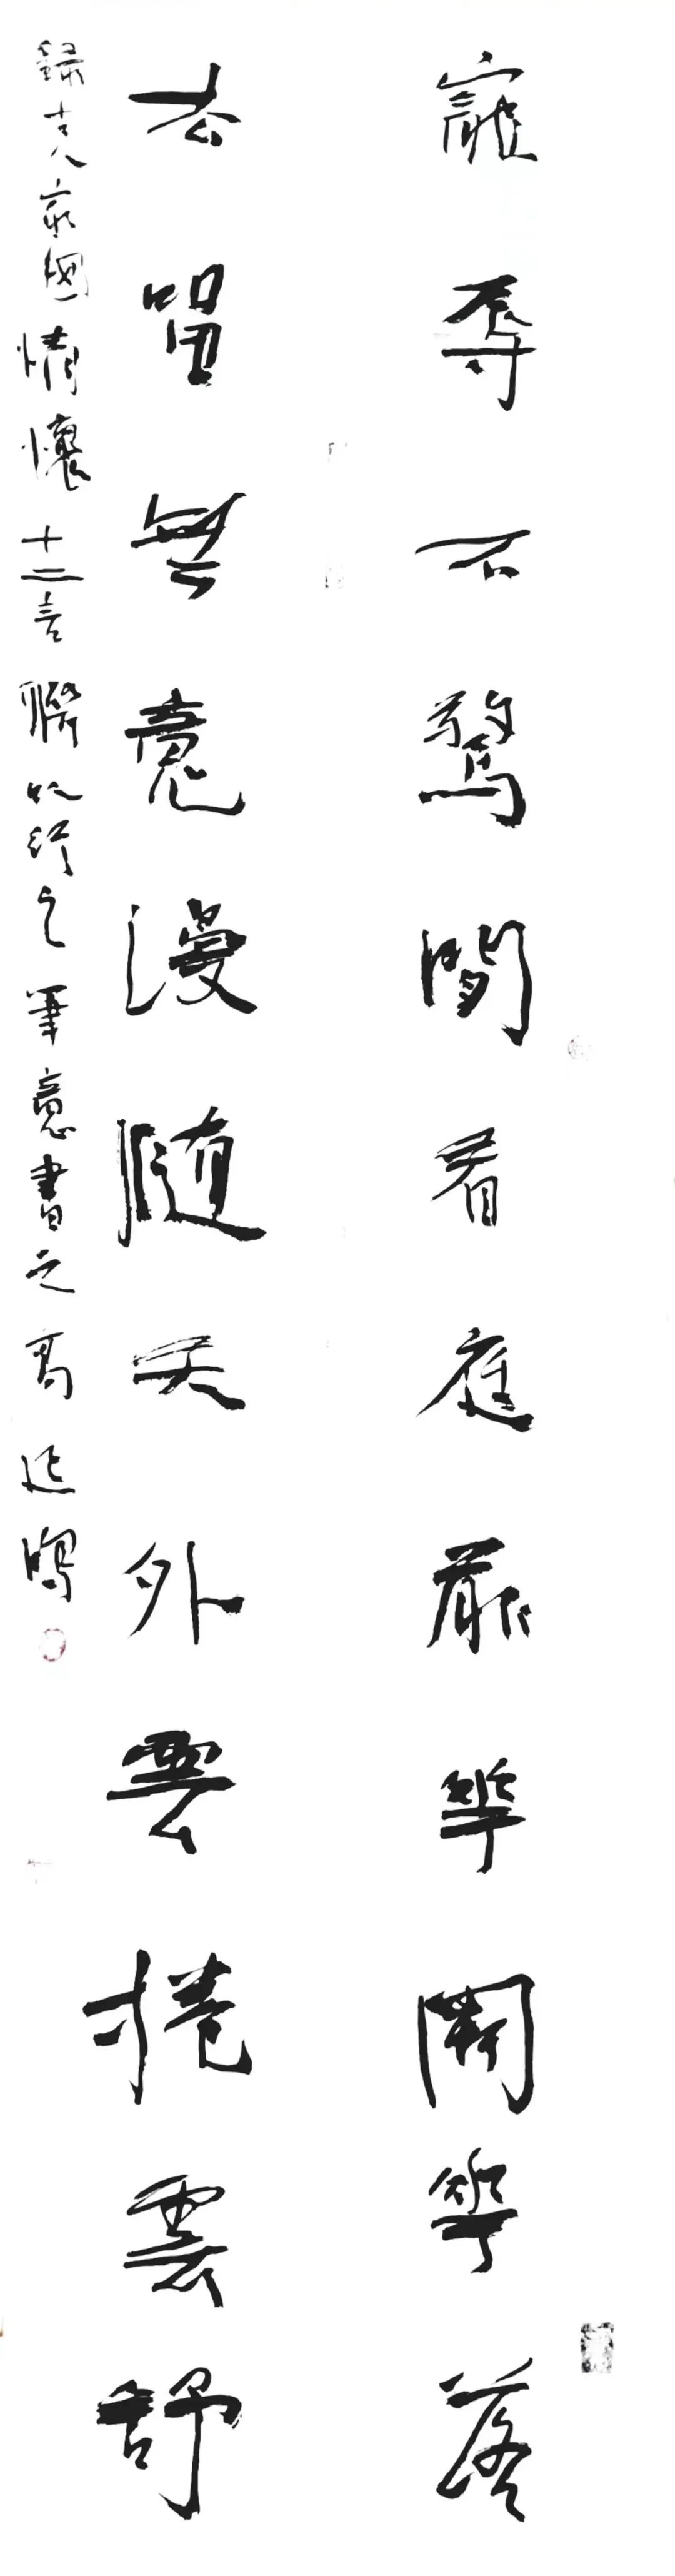 寵辱不驚閒看庭前華開華落
去留無意漫隨天外雲捲雲舒
錄古人家國情懷十二言聯以行之筆意書之高延鴻